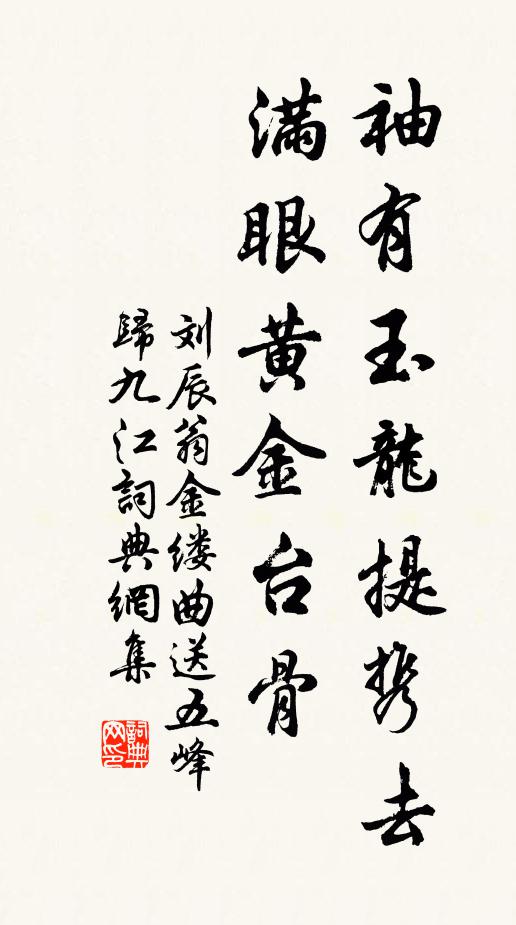 袖有玉龍提携去
满眼黄金台骨
刘辰翁金缕曲送五峰
歸九江詞典網集
詞典网印